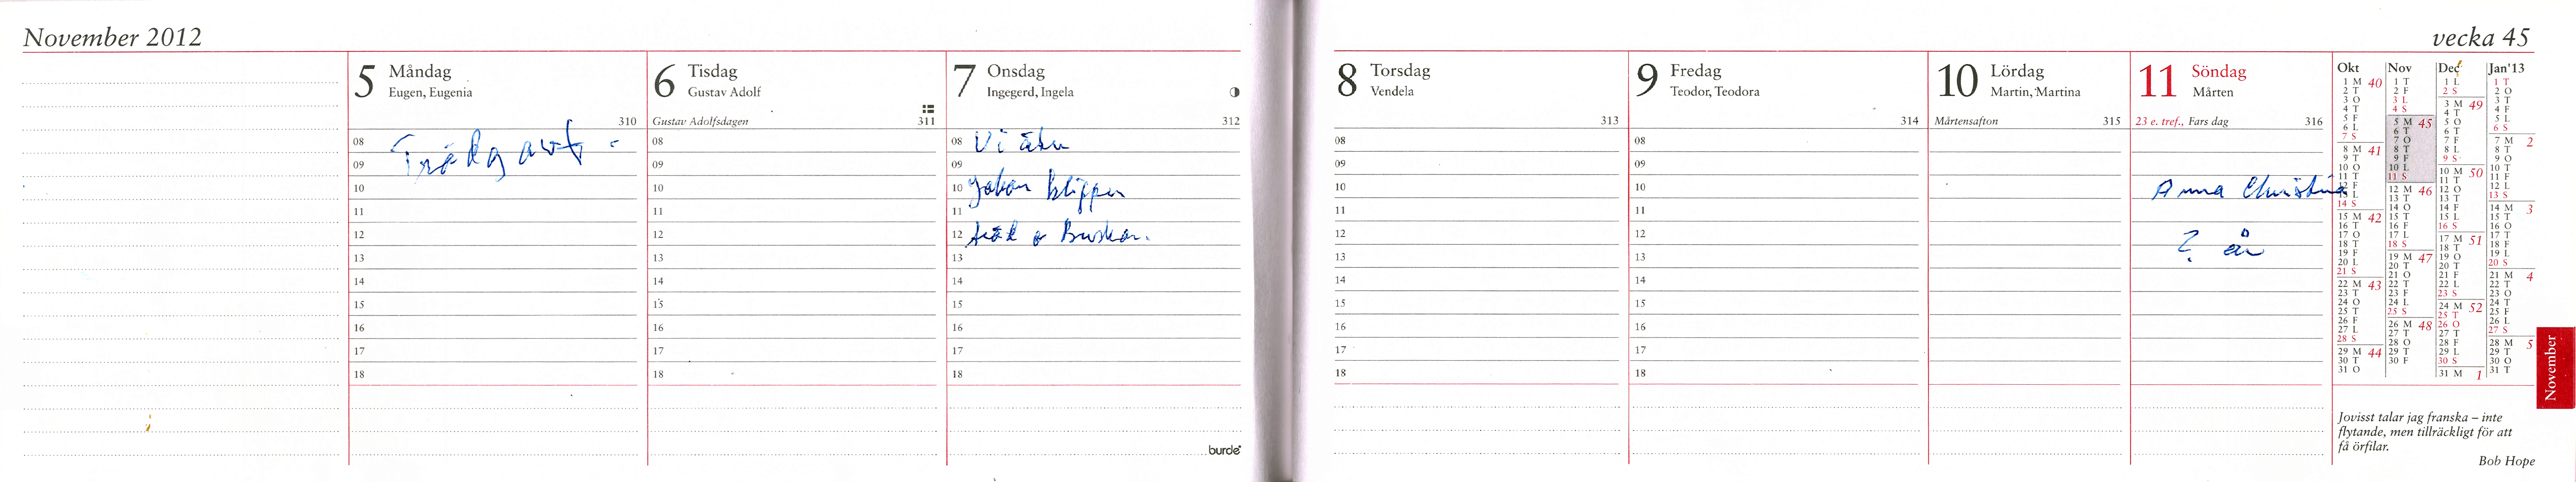 November 2012
5 Måndag
Eugen, Eugenia
310
08
09
10
11
12
13
14
15
16
17
18
6 Tisdag
Gustav Adolf
Gustav Adolfsdagen 311
08
09
10
11
12
13
14
15
16
17
18
7 Onsdag
Ingegerd, Ingela
312
08 Vi åker
09
10 Johan klipper
11
12 träd o Buskar.
13
14
15
16
17
18
burde
vecka 45
8 Torsdag
Vendela
313
08
09
10
11
12
13
14
15
16
17
18
9 Fredag
Teodor, Teodora
314
08
09
10
11
12
13
14
15
16
17
18
10 Lördag
Martin, Martina
Mårtensafton 315
11 Söndag
Mårten
23 e. tref., Fars dag 316
Anna Christina
? år
Okt
1 M 40
2 T
3 O
4 T
5 F
6 L
7 S
8 M 41
9 T
10 O
11 T
12 F
13 L
14 S
15 M 42
16 T
17 O
18 T
19 F
20 L
21 S
22 M 43
23 T
24 O
25 T
26 F
27 L
28 S
29 M 44
30 T
31 O
Nov
1 T
2 F
3 L
4 S
5 M 45
6 T
7 O
8 T
9 F
10 L
11 S
12 M 46
13 T
14 O
15 T
16 F
17 L
18 S
19 M 47
20 T
21 O
22 T
23 F
24 L
25 S
26 M 48
27 T
28 O
29 T
30 F
Dec
1 L
2 S
3 M 49
4 T
5 O
6 T
7 F
8 L
9 S
10 M 50
11 T
12 O
13 T
14 F
15 L
16 S
17 M 51
18 T
19 O
20 T
21 F
22 L
23 S
24 M 52
25 T
26 O
27 T
28 F
29 L
30 S
31 M 1
Jan'13
1 T
2 O
3 T
4 F
5 L
6 S
7 M 2
8 T
9 O
10 T
11 F
12 L
13 S
14 M 3
15 T
16 O
17 T
18 F
19 L
20 S
21 M 4
22 T
23 O
24 T
25 F
26 L
27 S
28 M 5
29 T
30 O
31 T
November
Jovisst talar jag franska – inte
flytande, men tillräckligt för att
få örfilar.
Bob Hope